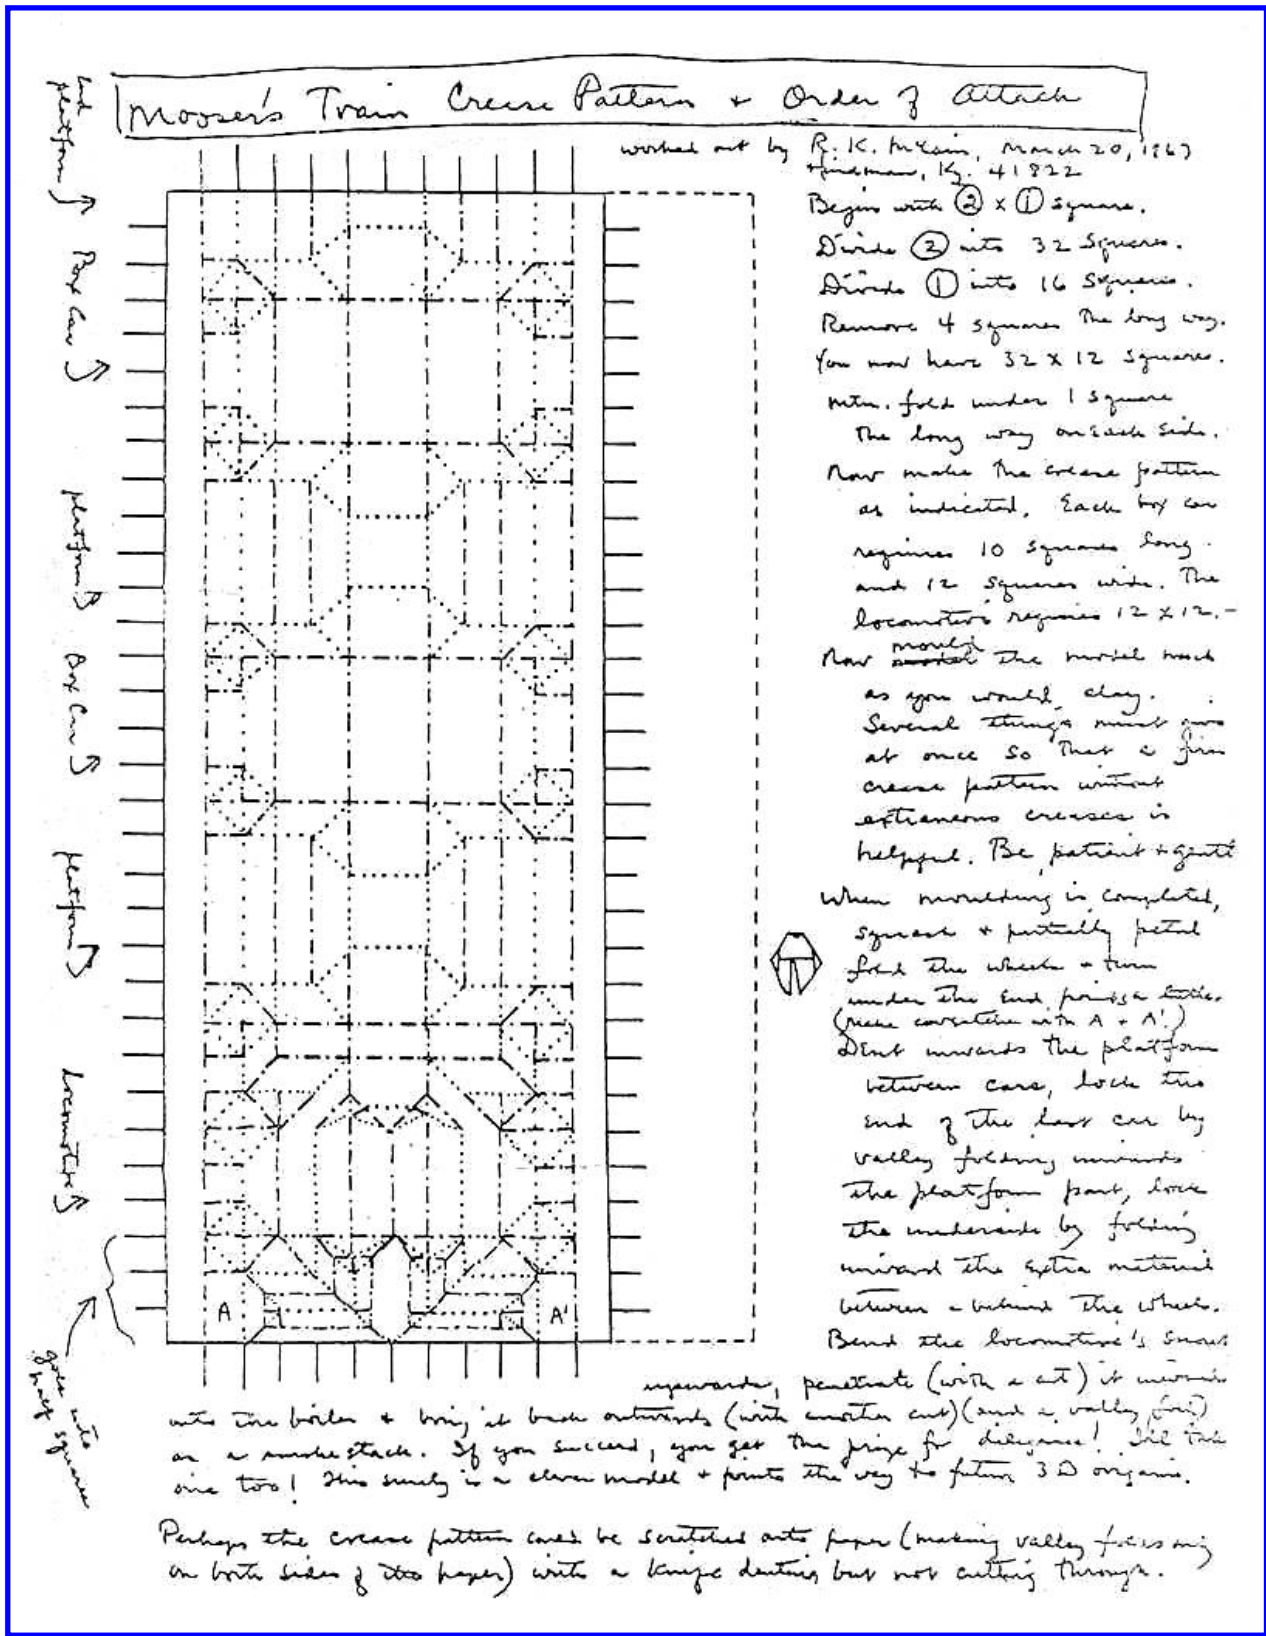 Mooser's Train Crease Pattern + Order of Attack
worked out by R. K. McLain, March 20, 1967
Hindman, Ky. 41822
Begin with ② x ① square.
Divide ② into 32 squares.
Divide ① into 16 squares.
Remove 4 squares the long way.
You now have 32 x 12 squares.
Mtn. fold under 1 square
the long way on each side.
Now make the crease pattern
as indicated. Each box car
requires 10 squares long
and 12 squares wide. The
locomotive requires 12 x 12.
Now mould the model much
as you would clay.
Several things must give
at once so that a firm
crease pattern without
extraneous creases is
helpful. Be patient + gentle
When moulding is completed,
squash + partially petal
fold the wheels + turn
under the end points a little.
(make cowcatcher with A + A'.)
Dent inwards the platform
between cars, lock the
end of the last car by
valley folding inwards
the platform part, lock
the underside by folding
inward the extra material
between + behind the wheels.
Bend the locomotive's snout
upwards, penetrate (with a cut) it inwards
into the boiler + bring it back outwards (with another cut) (and a valley fold)
as a smokestack. If you succeed, you get the prize for diligence! I'll take
one too! This surely is a clever model + points the way to future 3D origami.
Perhaps the crease pattern could be scratched onto paper (making valley folds only
on both sides of the paper) with a knife denting but not cutting through.
End platform
Box Car
platform
Box Car
platform
Locomotive
goes into half squares
A
A'